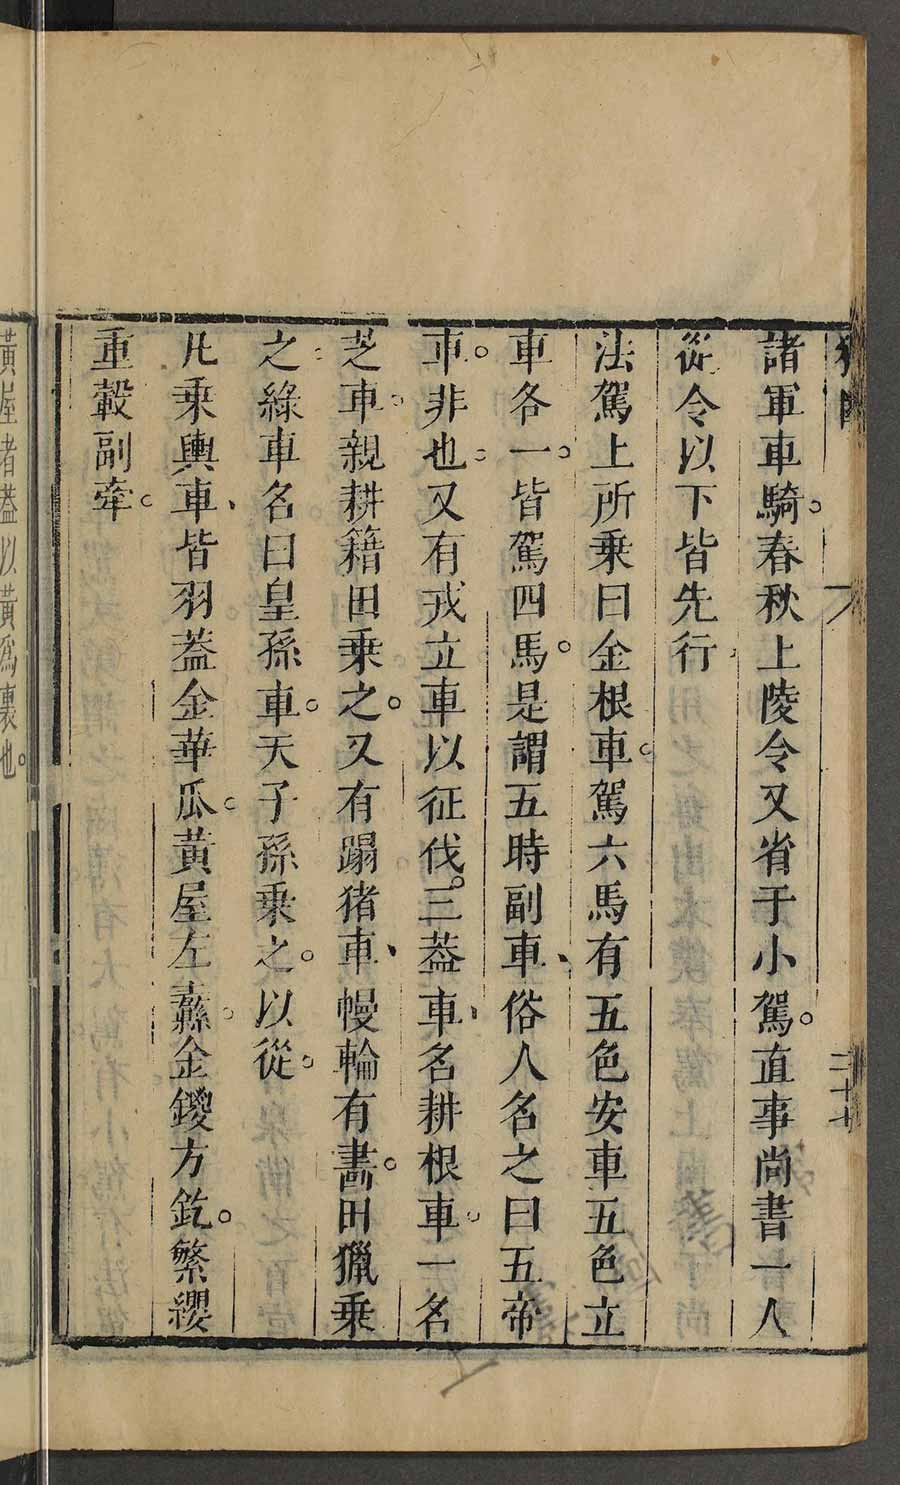 諸軍車騎。春秋上陵令又省于小駕。直事尚書一人
從令以下皆先行
法駕上所乘曰金根車。駕六馬有五色安車五色立
車各一。皆駕四馬。是謂五時副車、俗人名之曰五帝
車。非也。又有戎立車以征伐。三葢車、名耕根車。一名
芝車。親耕籍田乘之。又有蹋猪車、幔輪有畵。田獵乘
之。綠車名曰皇孫車。天子孫乘之。以從。
凡乘輿車、皆羽葢金華瓜。黃屋左纛。金鑁方釳。繁纓
重轂副牽。
二十七
黃屋者葢以黃爲裏也。